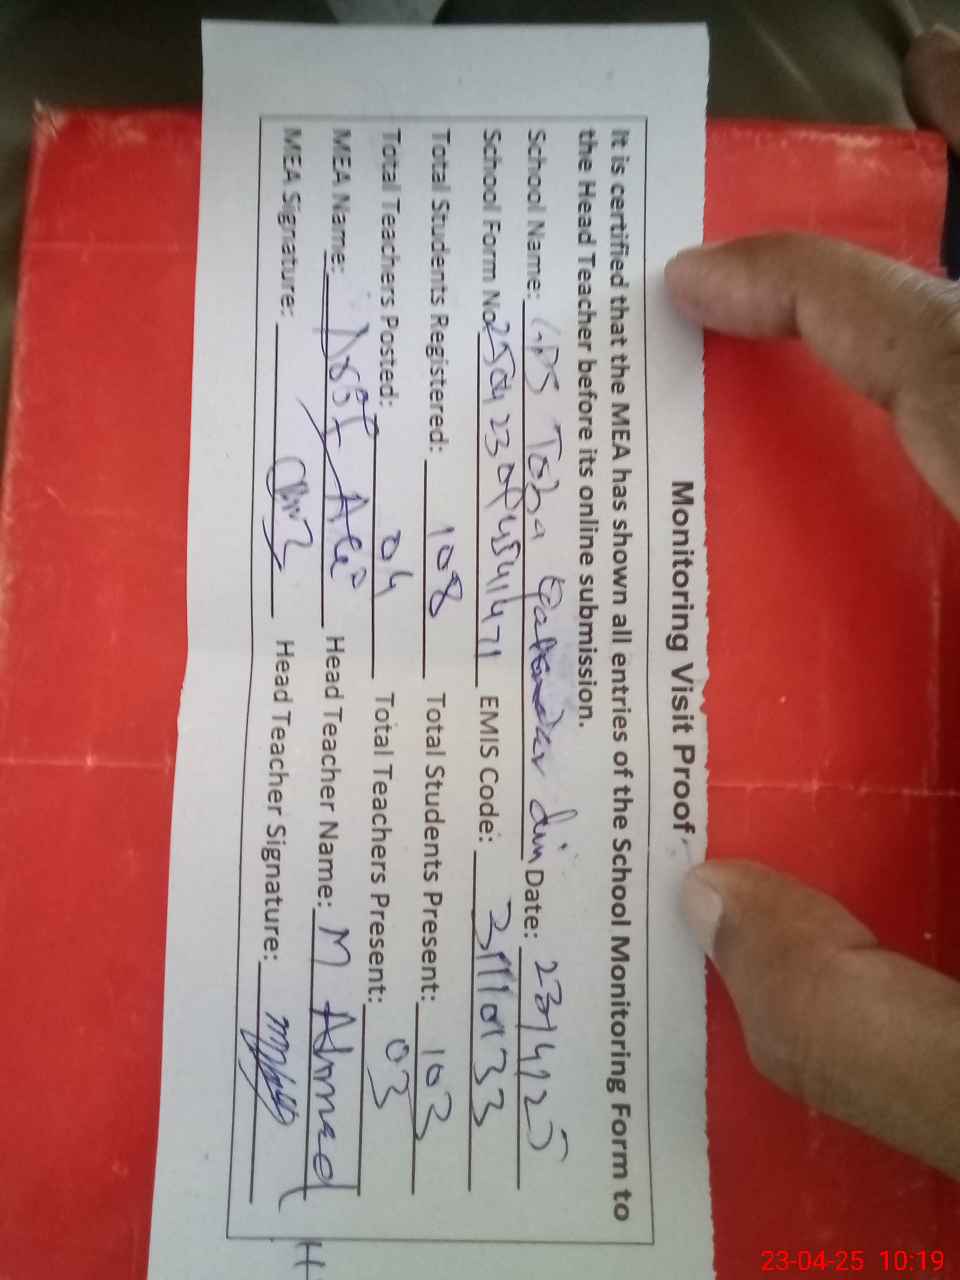 Monitoring Visit Proof
It is certified that the MEA has shown all entries of the School Monitoring Form to
the Head Teacher before its online submission.
School Name: GPS Toba Qalander din Date: 23/4/25
School Form No EMIS Code: 31110133
Total Students Registered: 108 Total Students Present: 103
Total Teachers Posted: 04 Total Teachers Present: 03
MEA Name: Head Teacher Name: M Ahmed
MEA Signature: Head Teacher Signature:
H
23-04-25 10:19